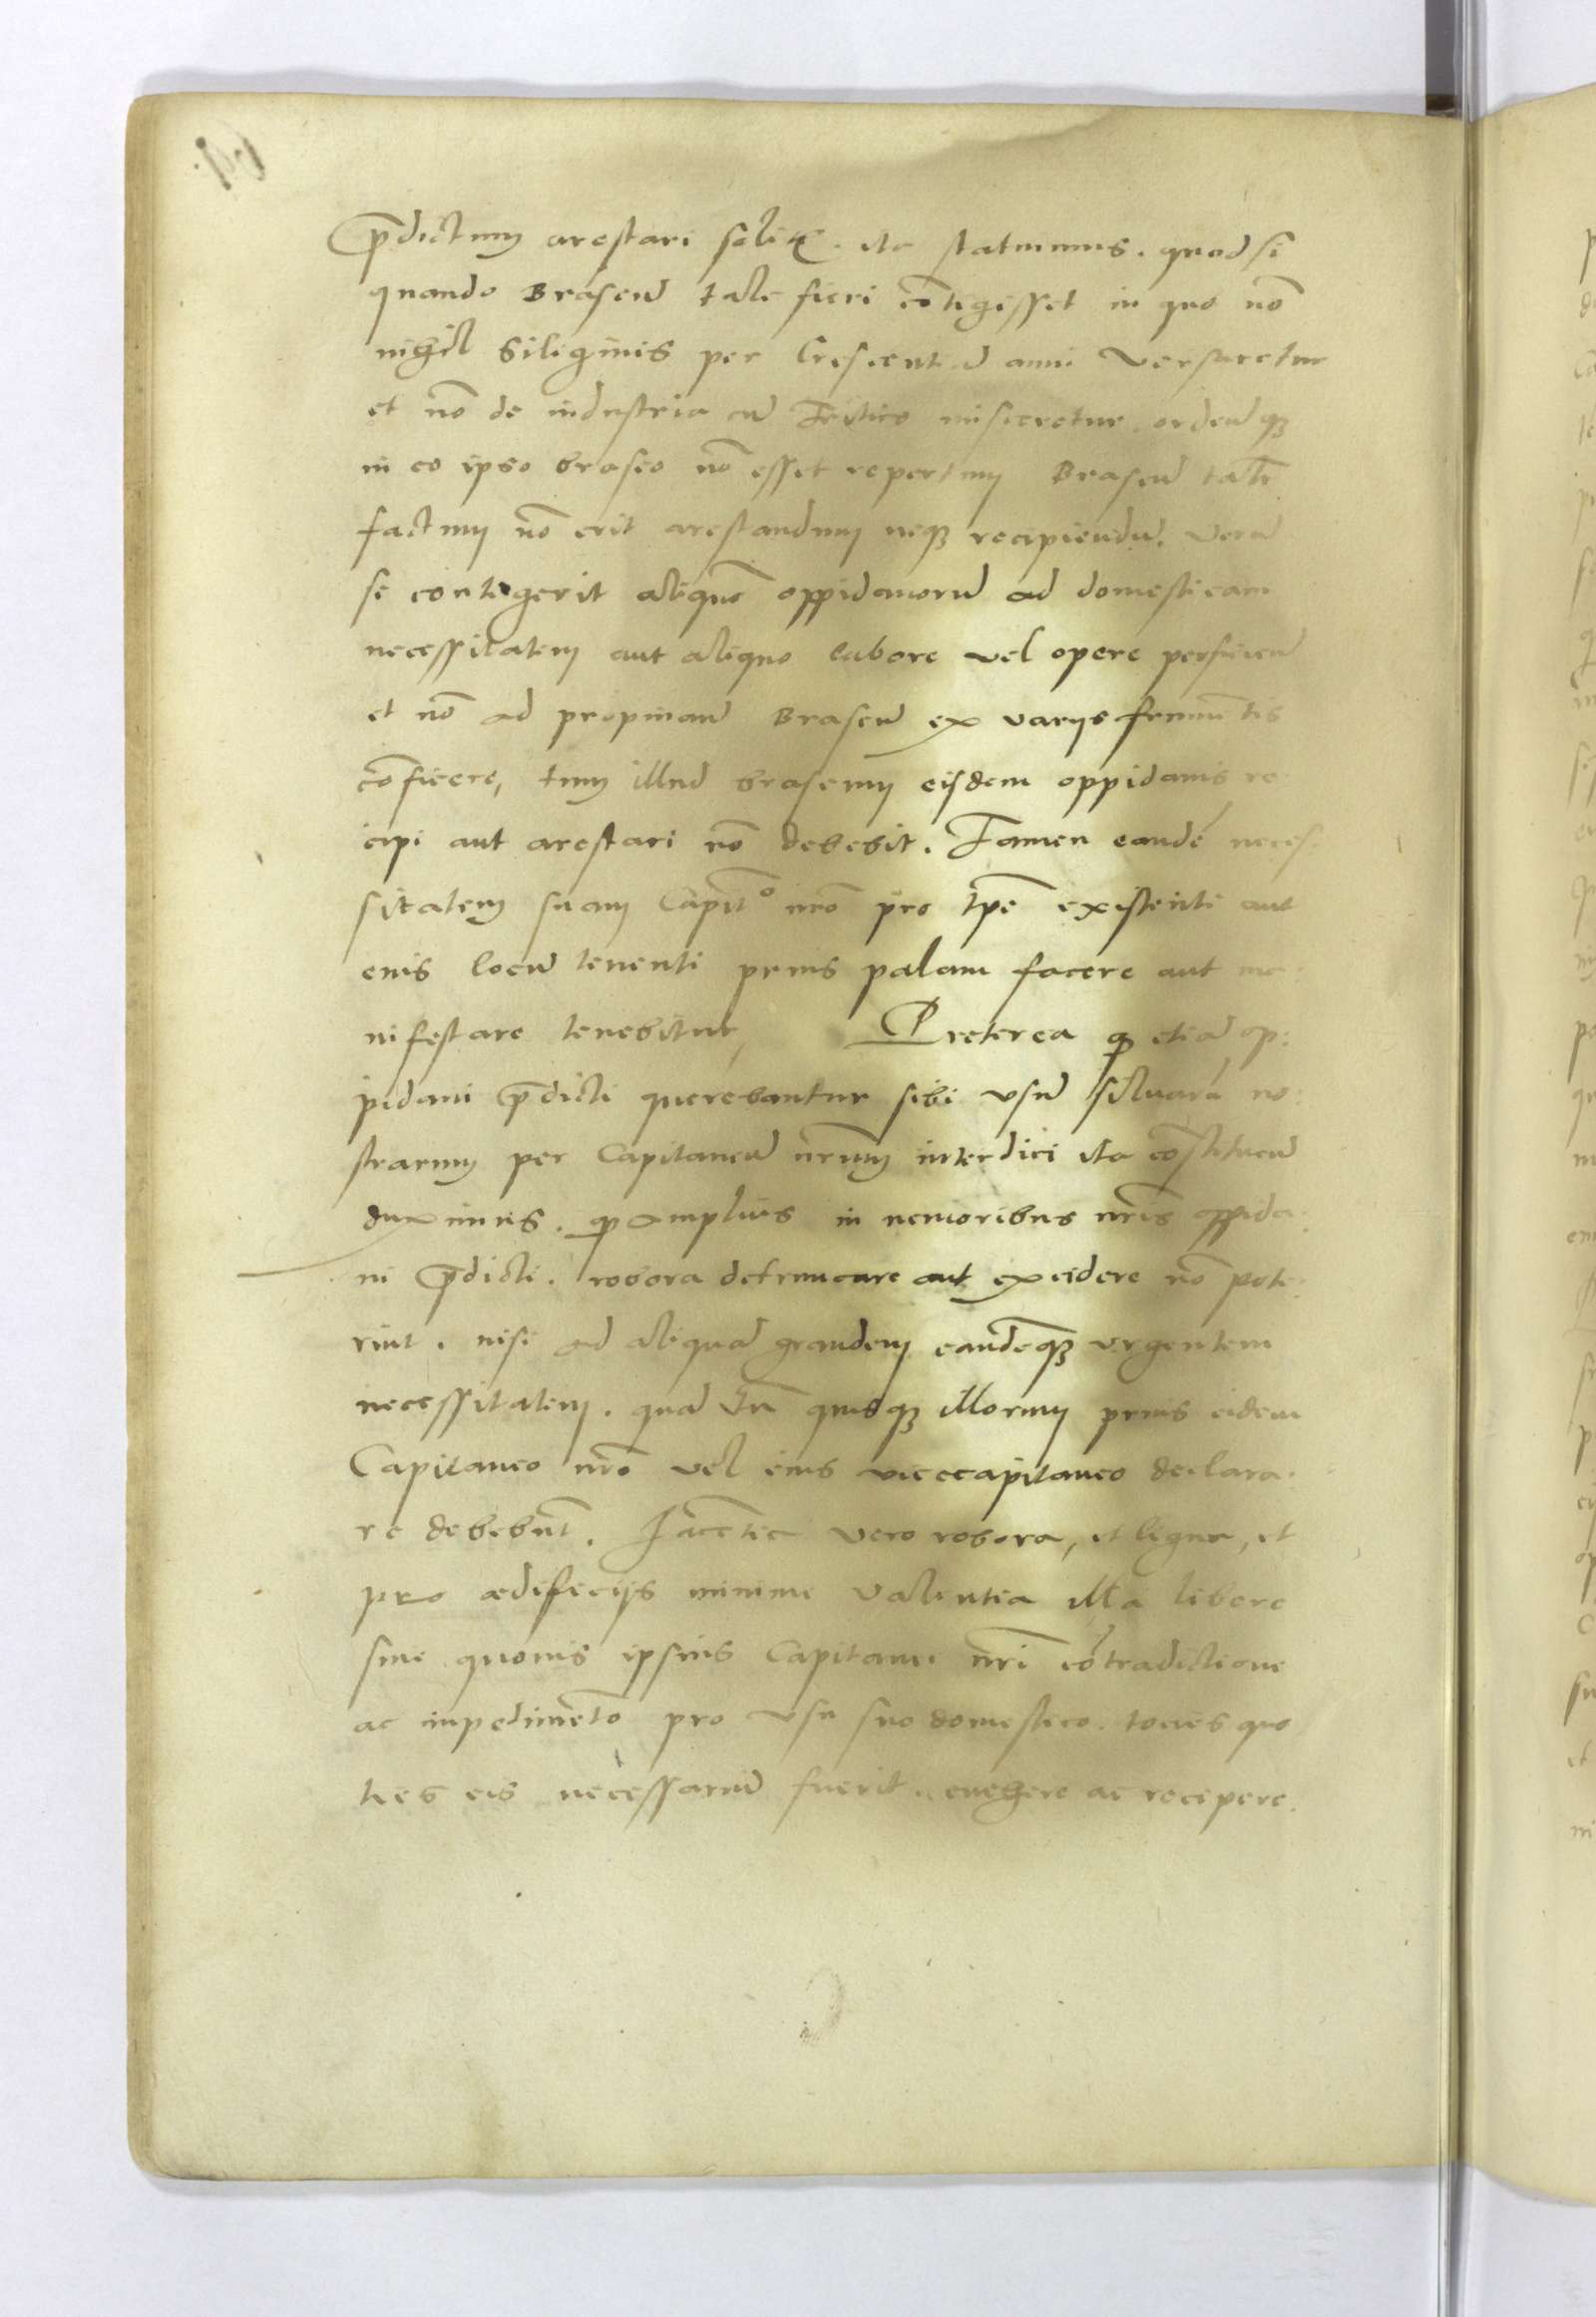 p̄dictum arestari solitū. ita statuimus. quod si
quando Braseū tale fieri cōtigisset in quo nō
nihil Siliginis per Crescentiā anni Versaretur
et nō de industria cū Tritico misceretur. ordeūqꝫ
in eo ipso braseo nō esset repertum Braseū tale
factum nō erit arestandum neqꝫ recipiendū. Verū
si contigerit aliquē oppidanorū ad domesticam
necessitatem aut aliquo labore vel opere perficiendū
et nō ad propinandū Braseū ex varijs frumētis
cōficere, tum illud braseum eisdem oppidanis re
cipi aut arestari nō debebit. Tamen eandē neces:
sitatem suam Capit° nr̄o pro tp̄e existenti aut
eius locū tenenti prius palam facere aut ma:
nifestare tenebitur, Preterea qꝫ etiā op:
pidani p̄dicti querebantur sibi vsū siluarū no:
strarum per Capitaneū nr̄um interdici ita cōstituendū
duximus. qꝫ amplius in nemoribus nr̄is oppida:
ni p̄dicti. robora detruncare aut excidere nō pote:
rint. nisi ad aliquā grandem eandēqꝫ vrgentem
necessitatem. quā tn̄ quisqꝫ illorum prius eidem
Capitaneo nr̄o vel eius vicecapitaneo declara:
re debebūt. Iacētia vero robora, et ligna, et
pro ædificijs minime Valentia illa libere
sine quouis ipsius Capitanei nr̄i cōtradictione
ac impedimēto pro vsu suo domestico. tocies quo
ties eis necessariū fuerit. euehere ac recipere.